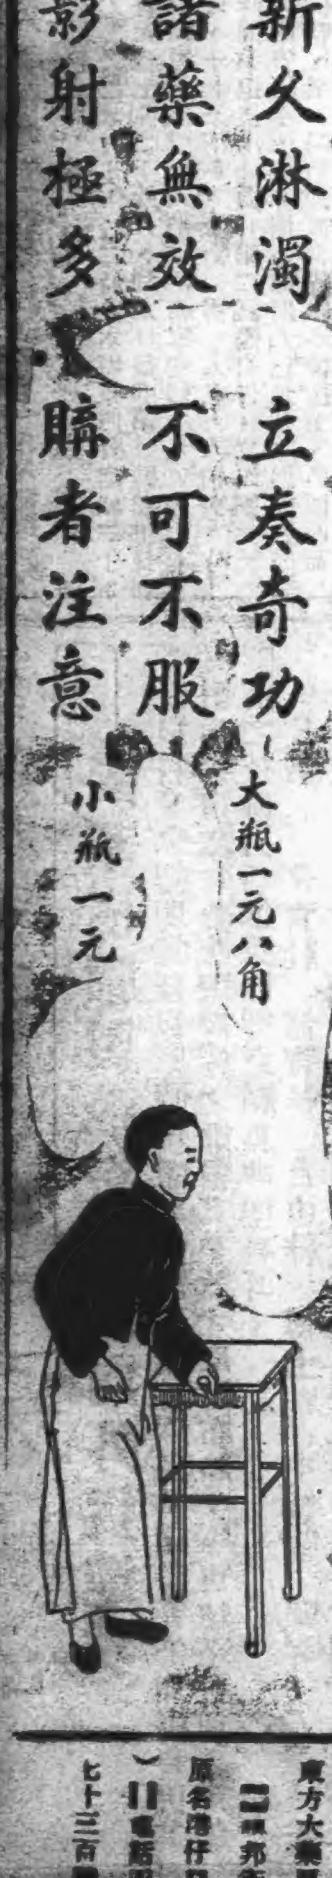 新久淋濁 立奏奇功
諸藥無效 不可不服
影射極多 購者注意
大瓶一元八角
小瓶一元
東方大藥
邦
原名港仔
電話
七十三百